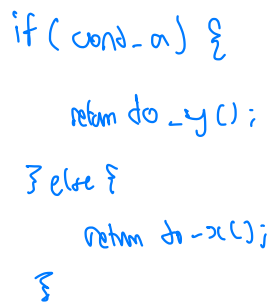 if (cond_a) {
return do_y();
} else {
return do_x();
}